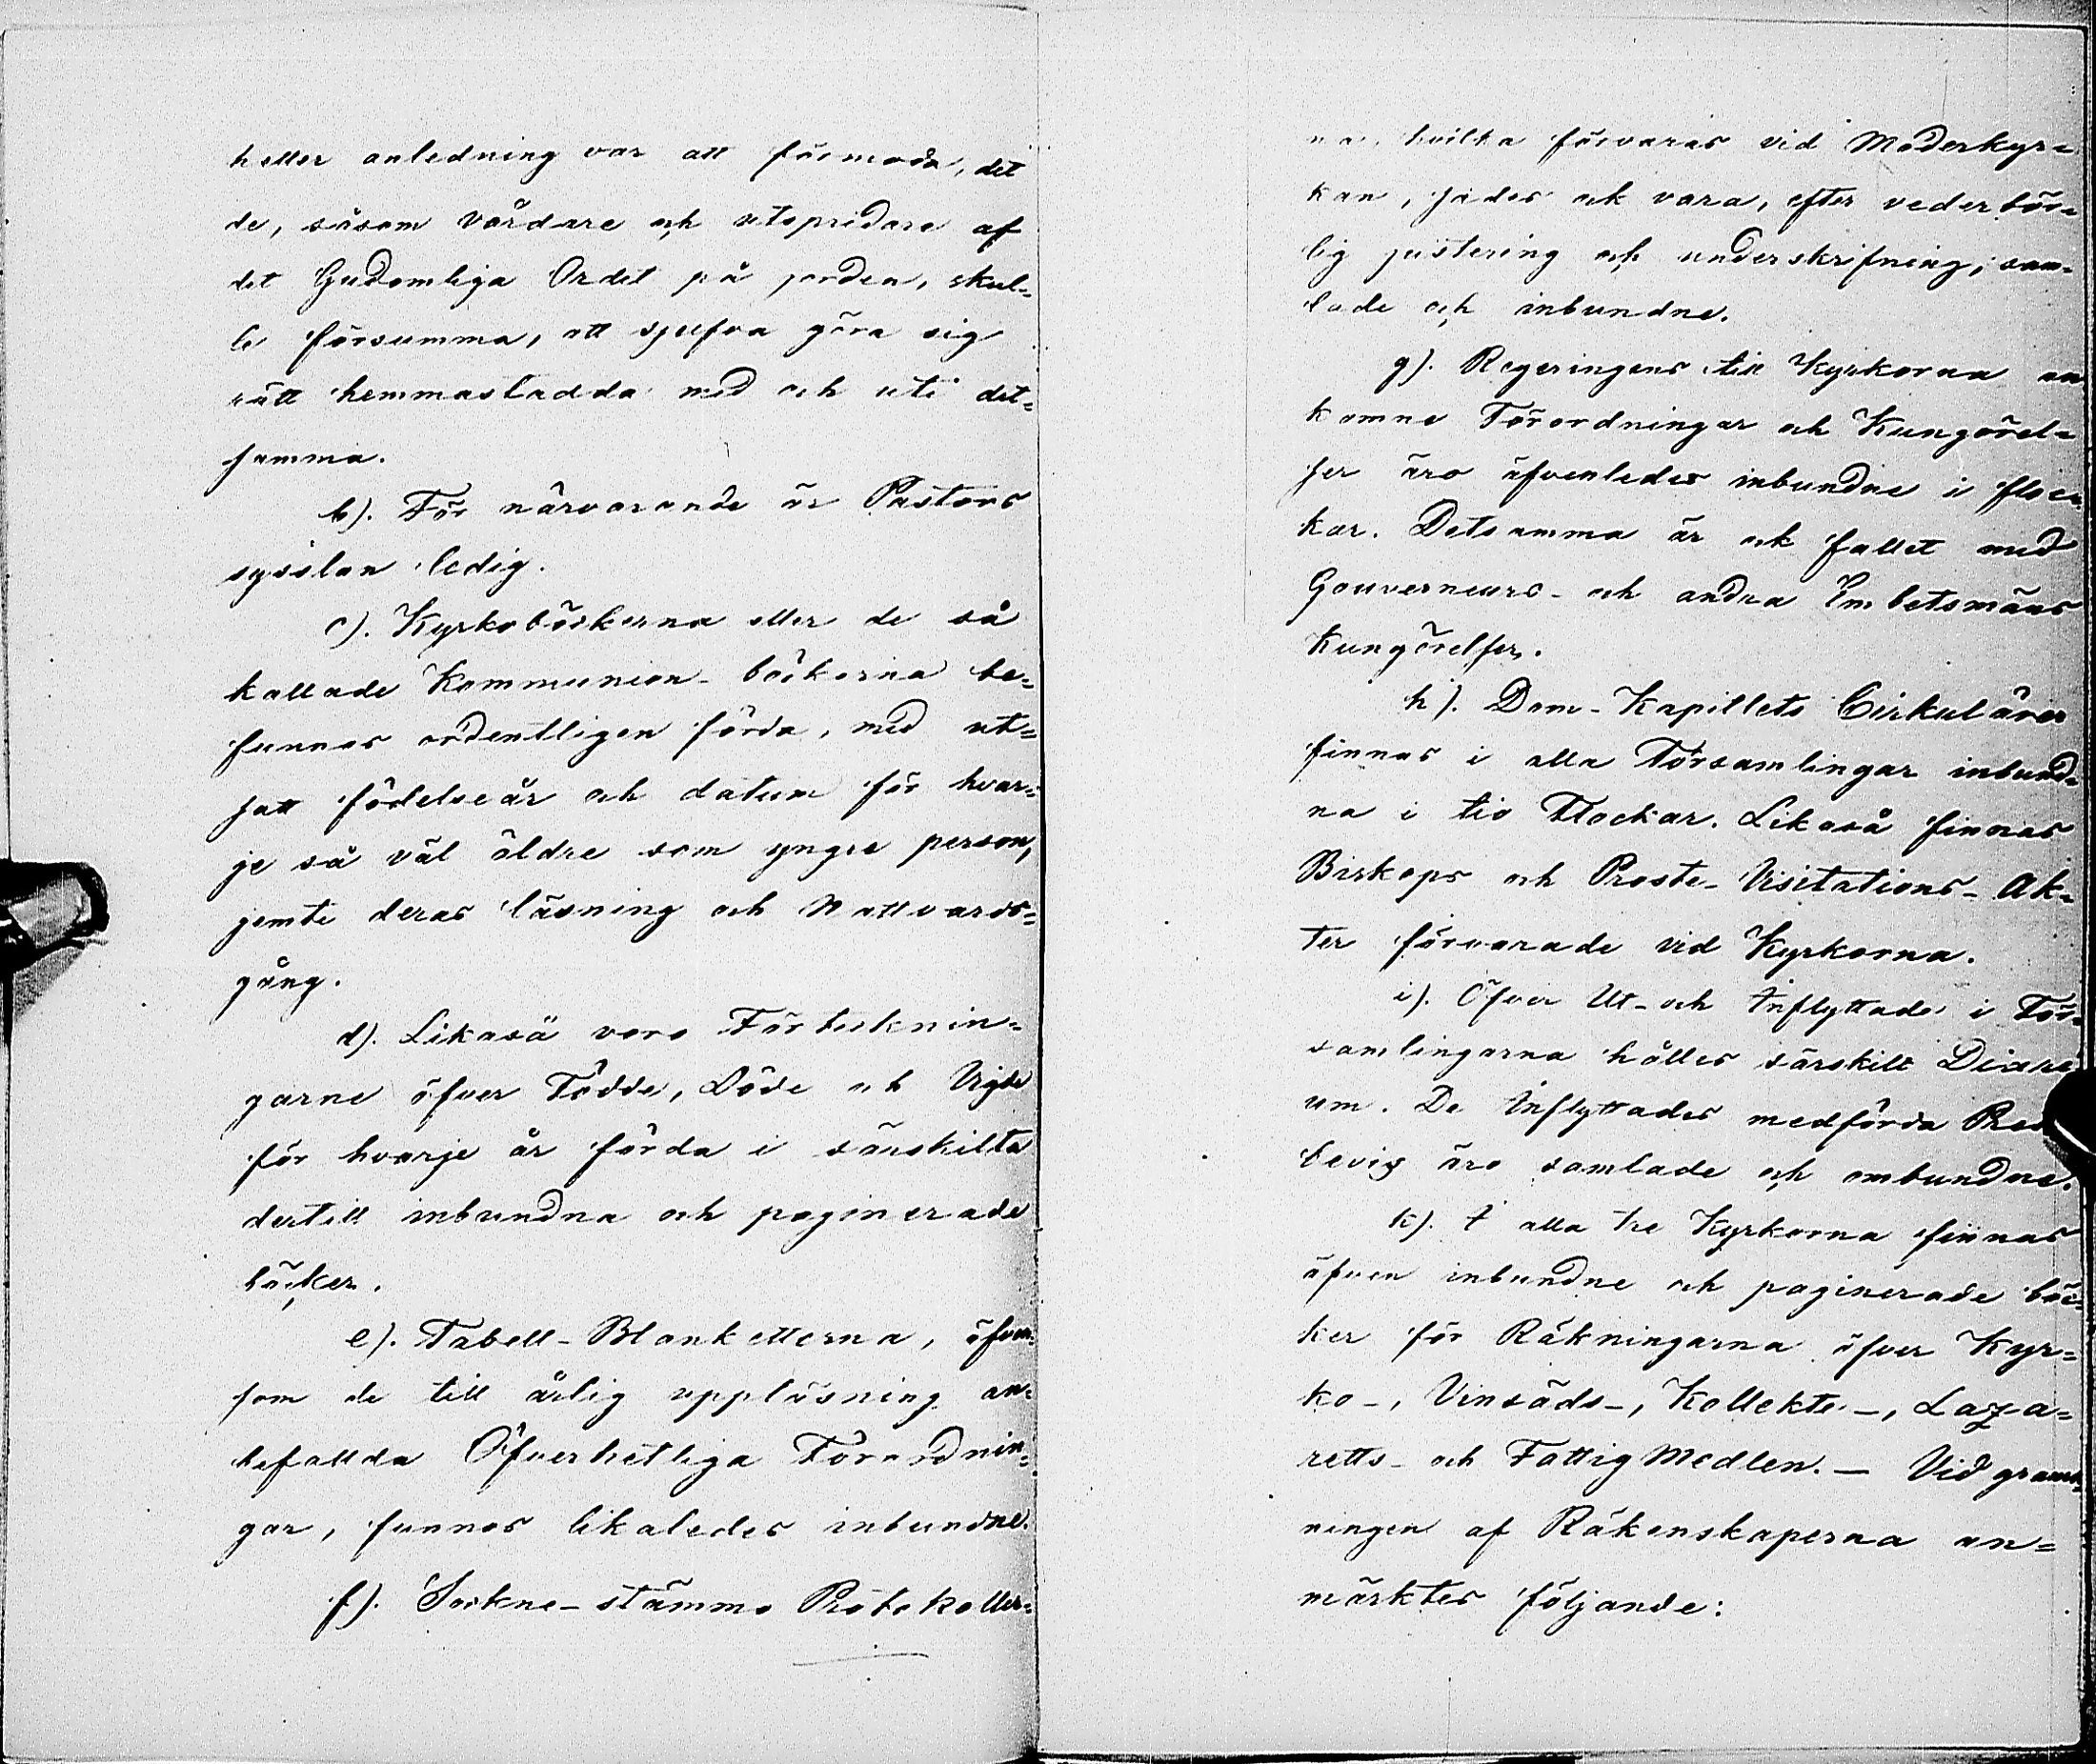 heller anledning var att förmoda, det
de, såsom vårdare och utspridare af
det Gudomliga Ordet på jorden, skul=
le försumma, att sjelfva göra sig
rätt hemmastadda med och uti det=
samma.
b). För närvarande är Pastors
sysslan ledig.
c). Kyrkoböckerna eller de så
kallade Kommunion-böckerna be=
funnos ordentligen förda, med ut=
satt födelseår och datum för hvar=
je så väl äldre som yngre person,
jemte deras läsning och Nattvards=
gång.
d). Likaså voro Förtecknin=
garne öfver Födde, Döde och Vigde
för hvarje år förda i särskilta
dertill inbundna och paginerade
böcker.
e). Tabell-Blanketterna, äfven=
som de till årlig uppläsning an=
befallda Öfverhetliga Förordnin=
gar, funnos likaledes inbundne.
f). Sockne-stämmo Protokoller=
na, hvilka förvaras vid Moderkyr=
kan, sades ock vara, efter vederbör=
lig justering och underskrifning, sam=
lade och inbundne.
g). Regeringens till Kyrkorna an
komne Förordningar och Kungörel=
ser äro äfvenledes inbundne i floc=
kar. Detsamma är ock fallet med
Gouverneurs- och andra Embetsmäns
Kungörelser.
h). Dom-Kapitlets Cirkulärer
finnas i alla Församlingar inbund=
na i tio Flockar. Likaså finnas
Biskops och Proste-Visitations-Ak=
ter förvarade vid Kyrkorna.
i). Öfver Ut- och Inflyttade i För=
samlingarna hålles särskilt Diari
um. De Inflyttades medförda
bevis äro samlade och ombundne.
k). I alla tre Kyrkorna finnas
äfven inbundne och paginerade böc=
ker för Räkningarna öfver Kyr=
ko-, Vinsäds-, Kollekte-, Laza=
retts- och Fattig Medlen. — Vid gransk=
ningen af Räkenskaperna an=
märktes följande: